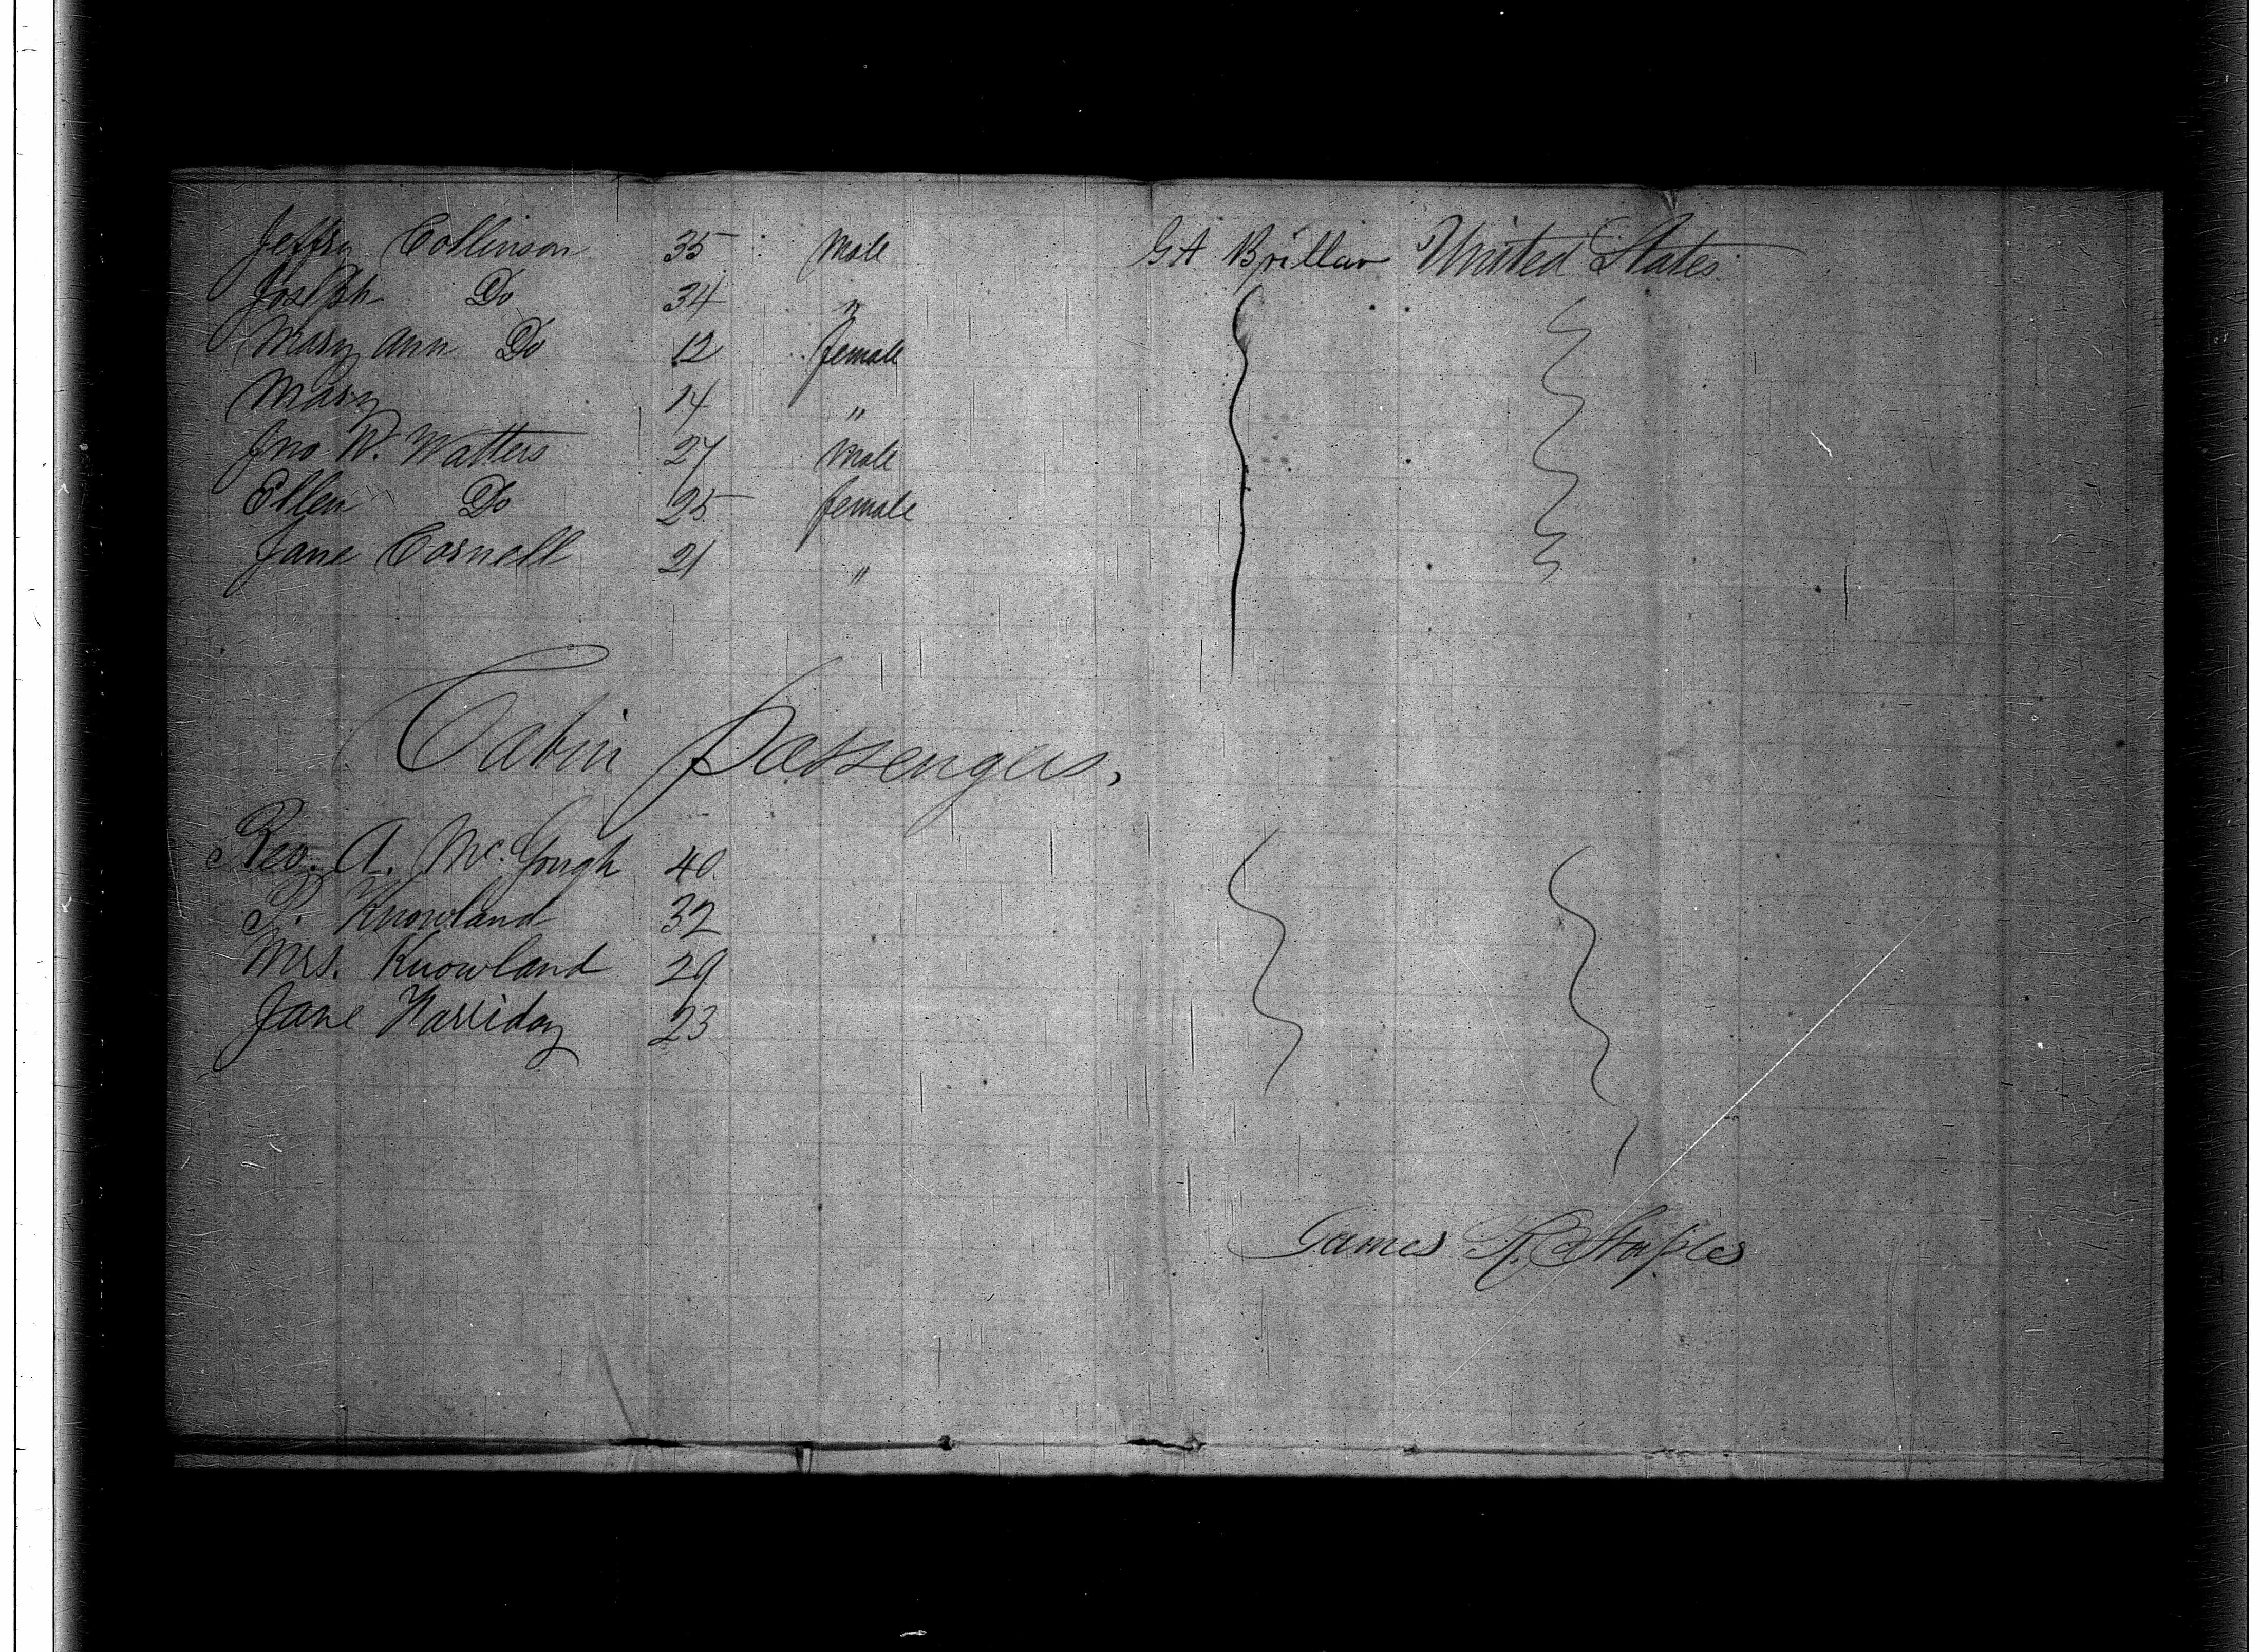 Jeffry Collinson 35 Male Gt Brittan United States
Joseph Do 34 "
Mary Ann Do 12 female
Mary 14 "
Jno W. Watters 27 Male
Ellen Do 25 female
Jane Cornell 21 "
Cabin Passengers,
Rev. A. McGough 40
P. Knowland 32
Mrs. Knowland 29
Jane Harriday 23
James R. Staples